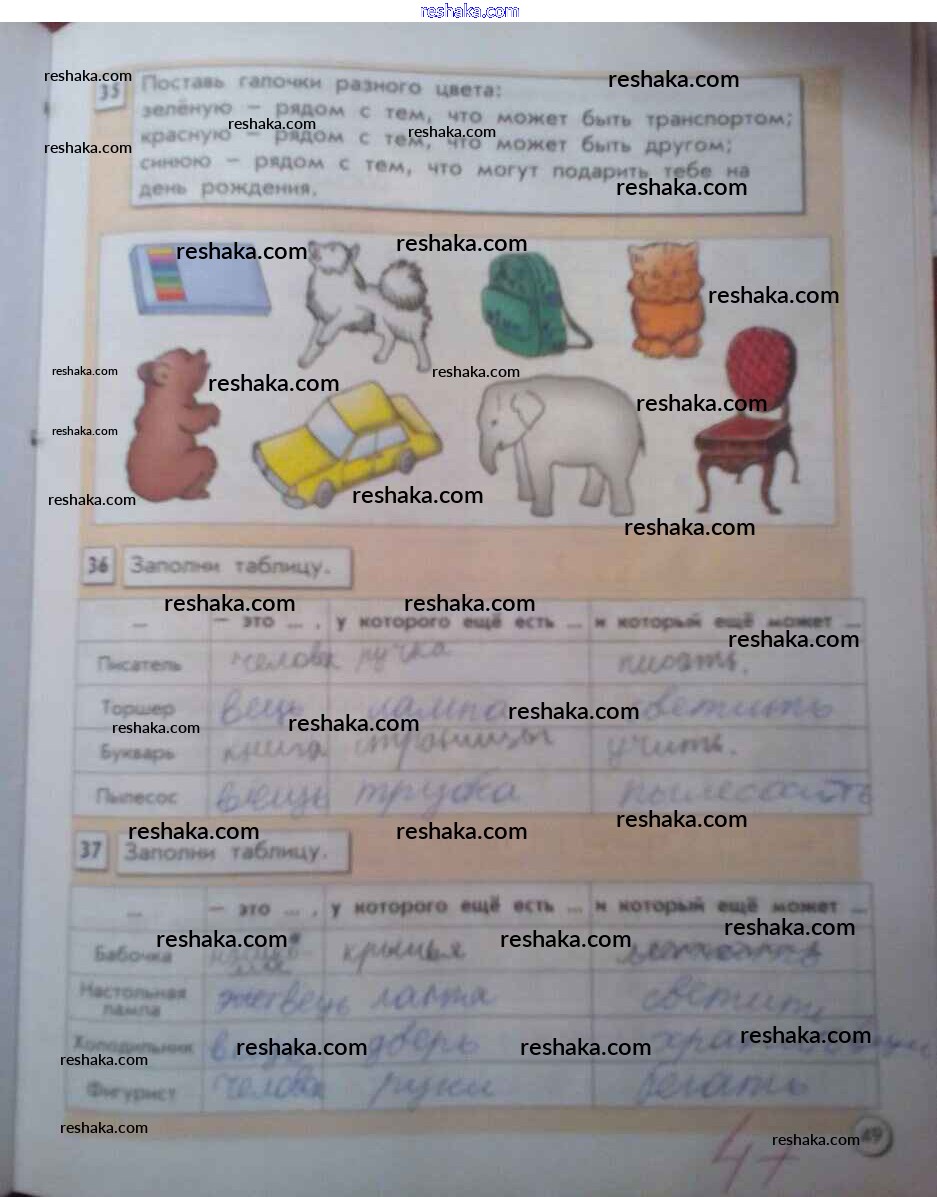 reshaka.com
35 Поставь галочки разного цвета:
зелёную – рядом с тем, что может быть транспортом;
красную – рядом с тем, что может быть другом;
синюю – рядом с тем, что могут подарить тебе на
день рождения.
reshaka.com reshaka.com
reshaka.com reshaka.com
reshaka.com
reshaka.com
reshaka.com reshaka.com
reshaka.com
reshaka.com reshaka.com
reshaka.com
reshaka.com
reshaka.com
reshaka.com reshaka.com
reshaka.com
36 Заполни таблицу.
reshaka.com reshaka.com
... – это ... , у которого ещё есть ... и который ещё может ...
reshaka.com
Писатель человек ручка писать.
Торшер вещь лампа светить
reshaka.com reshaka.com reshaka.com
Букварь книга страницы учить.
Пылесос вещь трубка пылесосить
reshaka.com reshaka.com reshaka.com
37 Заполни таблицу.
... – это ... , у которого ещё есть ... и который ещё может ...
reshaka.com reshaka.com reshaka.com
Бабочка крылья
Настольная лампа вещь светить
Холодильник дверь
reshaka.com reshaka.com reshaka.com reshaka.com
Фигурист человек руки бегать
reshaka.com reshaka.com
49
4+